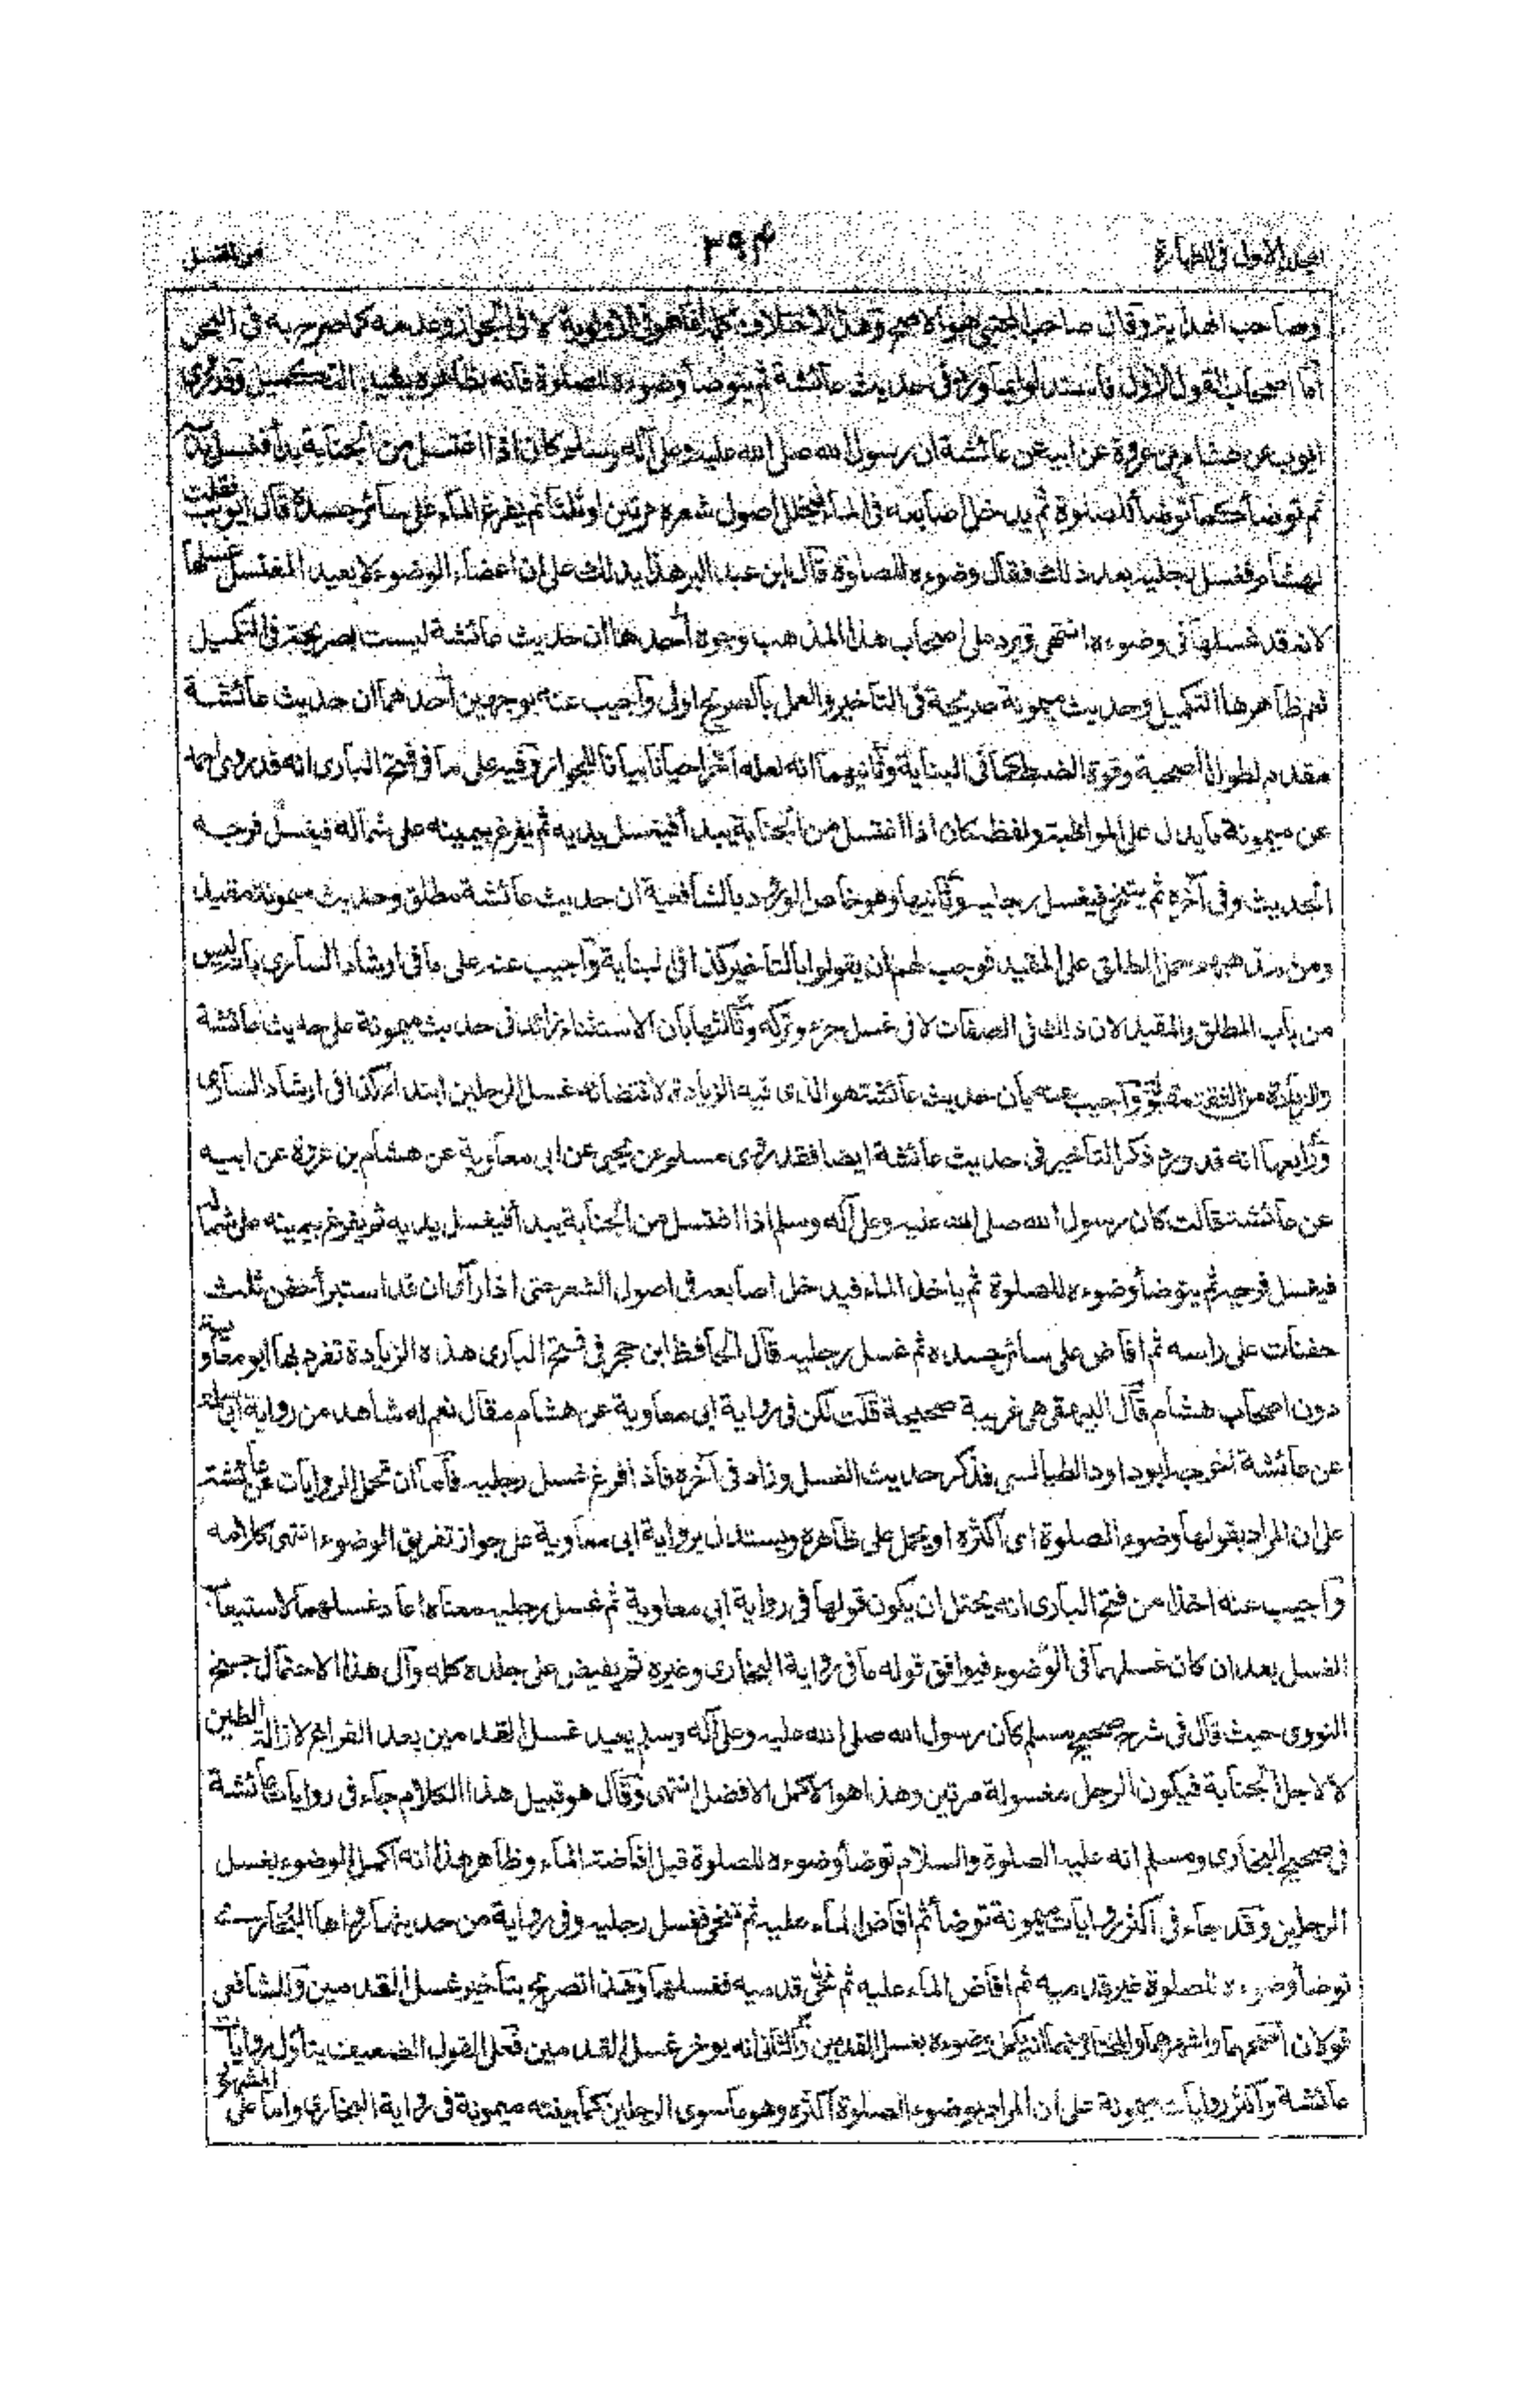 المجلد الاول فى الطهارة
٢٩٤
من الغسل
وصاحب الهداية وقال صاحب المجتبى هو الاصح وهذا الاختلاف كله انما هو فى الاولوية لا فى الجواز وعدمه كما صرح به فى البحر
أما اصحاب القول الاول فاستدلوا بما ورد فى حديث عائشة ثم يتوضأ وضوءه للصلوة فانه بظاهره يفيد التكميل وقد روى
ايوب عن هشام بن عروة عن ابيه عن عائشة ان رسول الله صلى الله عليه وعلى آله وسلم كان اذا اغتسل من الجنابة بدأ فغسل يديه
ثم توضأ كما توضأ للصلوة ثم يدخل اصابعه فى الماء فيخلل اصول شعره مرتين او ثلثا ثم يفرغ الماء على سائر جسده قال ايوب فقلت
لهشام فغسل رجليه بعد ذلك فقال وضوءه للصلوة قال ابن عبد البر هذا يدلك على ان اعضاء الوضوء لا يعيد المغتسل غسلها
لانه قد غسلها فى وضوءه انتهى ويرد على اصحاب هذا المذهب وجوه أحدها ان حديث عائشة ليست بصريحة فى التكميل
نعم ظاهرها التكميل وحديث ميمونة صريحة فى التأخير والعمل بالصريح اولى وأجيب عنه بوجهين أحدهما ان حديث عائشة
مقدم لطول الصحبة وقوة الضبط كما فى البناية وثانيهما انه لعله أخر احيانا بيانا للجواز وفيه على ما فى فتح البارى انه قد روى احمد
عن ميمونة ما يدل على المواظبة ولفظه كان اذا اغتسل من الجنابة يبدأ فيغسل يديه ثم يفرغ بيمينه على شماله فيغسل فرجه
الحديث وفى آخره ثم يتنحى فيغسل رجليه وثانيها وهو خاص الورود بالشافعية ان حديث عائشة مطلق وحديث ميمونة مقيد
ومن مذهبهم حمل المطلق على المقيد فوجب لهم ان يقولوا بالتأخير كذا فى البناية وأجيب عنه على ما فى ارشاد السارى بانه ليس
من باب المطلق والمقيد لان ذلك فى الصفات لا فى غسل جزء وتركه وثالثها بان الاستثناء زائد فى حديث ميمونة على حديث عائشة
والزيادة من الثقة مقبولة وأجيب عنه بان حديث عائشة هو الذى فيه الزيادة لاقتضائه غسل الرجلين ابتداء كذا فى ارشاد السارى
ورابعها انه قد ورد ذكر التأخير فى حديث عائشة ايضا فقد روى مسلم عن يحيى عن ابى معاوية عن هشام بن عروة عن ابيه
عن عائشة قالت كان رسول الله صلى الله عليه وعلى آله وسلم اذا اغتسل من الجنابة يبدأ فيغسل يديه ثم يفرغ بيمينه على شماله
فيغسل فرجه ثم يتوضأ وضوءه للصلوة ثم ياخذ الماء فيدخل اصابعه فى اصول الشعر حتى اذا رأى ان قد استبرأ حفن ثلث
حفنات على راسه ثم افاض على سائر جسده ثم غسل رجليه قال الحافظ ابن حجر فى فتح البارى هذه الزيادة تفرد بها ابو معاوية
دون اصحاب هشام قال البيهقى هى غريبة صحيحة قلت لكن فى رواية ابى معاوية عن هشام مقال نعم له شاهد من رواية ابى سلمة
عن عائشة اخرجه ابوداود الطيالسى فذكر حديث الغسل وزاد فى آخره فاذا فرغ غسل رجليه فاما ان تحمل الروايات عن عائشة
على ان المراد بقولها وضوء الصلوة اى أكثره او يحمل على ظاهره ويستدل برواية ابى معاوية على جواز تفريق الوضوء انتهى كلامه
وأجيب عنه اخذا من فتح البارى انه يحتمل ان يكون قولها فى رواية ابى معاوية ثم غسل رجليه معناه اعاد غسلهما لاستيعاب
الغسل بعد ان كان غسلهما فى الوضوء فيوافق قوله ما فى رواية البخارى وغيره ثم يفيض على جلده كله وآل هذا الاحتمال جنح
النووى حيث قال فى شرح صحيح مسلم كان رسول الله صلى الله عليه وعلى آله وسلم يعيد غسل القدمين بعد الفراغ لازالة الطين
لا لاجل الجنابة فيكون الرجل مغسولة مرتين وهذا هو الاكمل الافضل انتهى وقال هو قبيل هذا الكلام جاء فى روايات عائشة
فى صحيح البخارى ومسلم انه عليه الصلوة والسلام توضأ وضوءه للصلوة قبل افاضة الماء وظاهر هذا انه اكمل الوضوء بغسل
الرجلين وقد جاء فى اكثر روايات ميمونة توضأ ثم افاض الماء عليه ثم تنحى فغسل رجليه وفى رواية من حديثها رواها البخارى
توضأ وضوءه للصلوة غير قدميه ثم افاض الماء عليه ثم نحى قدميه فغسلهما وهذا تصريح بتأخير غسل القدمين وللشافعى
قولان أصحهما واشهرهما والمختار منهما انه يكمل وضوءه بغسل القدمين والثانى انه يوخر غسل القدمين فعلى القول الضعيف يتأول روايات
عائشة وأكثر روايات ميمونة على ان المراد بوضوء الصلوة أكثره وهو ما سوى الرجلين كما بينته ميمونة فى رواية البخارى واما على المشهور